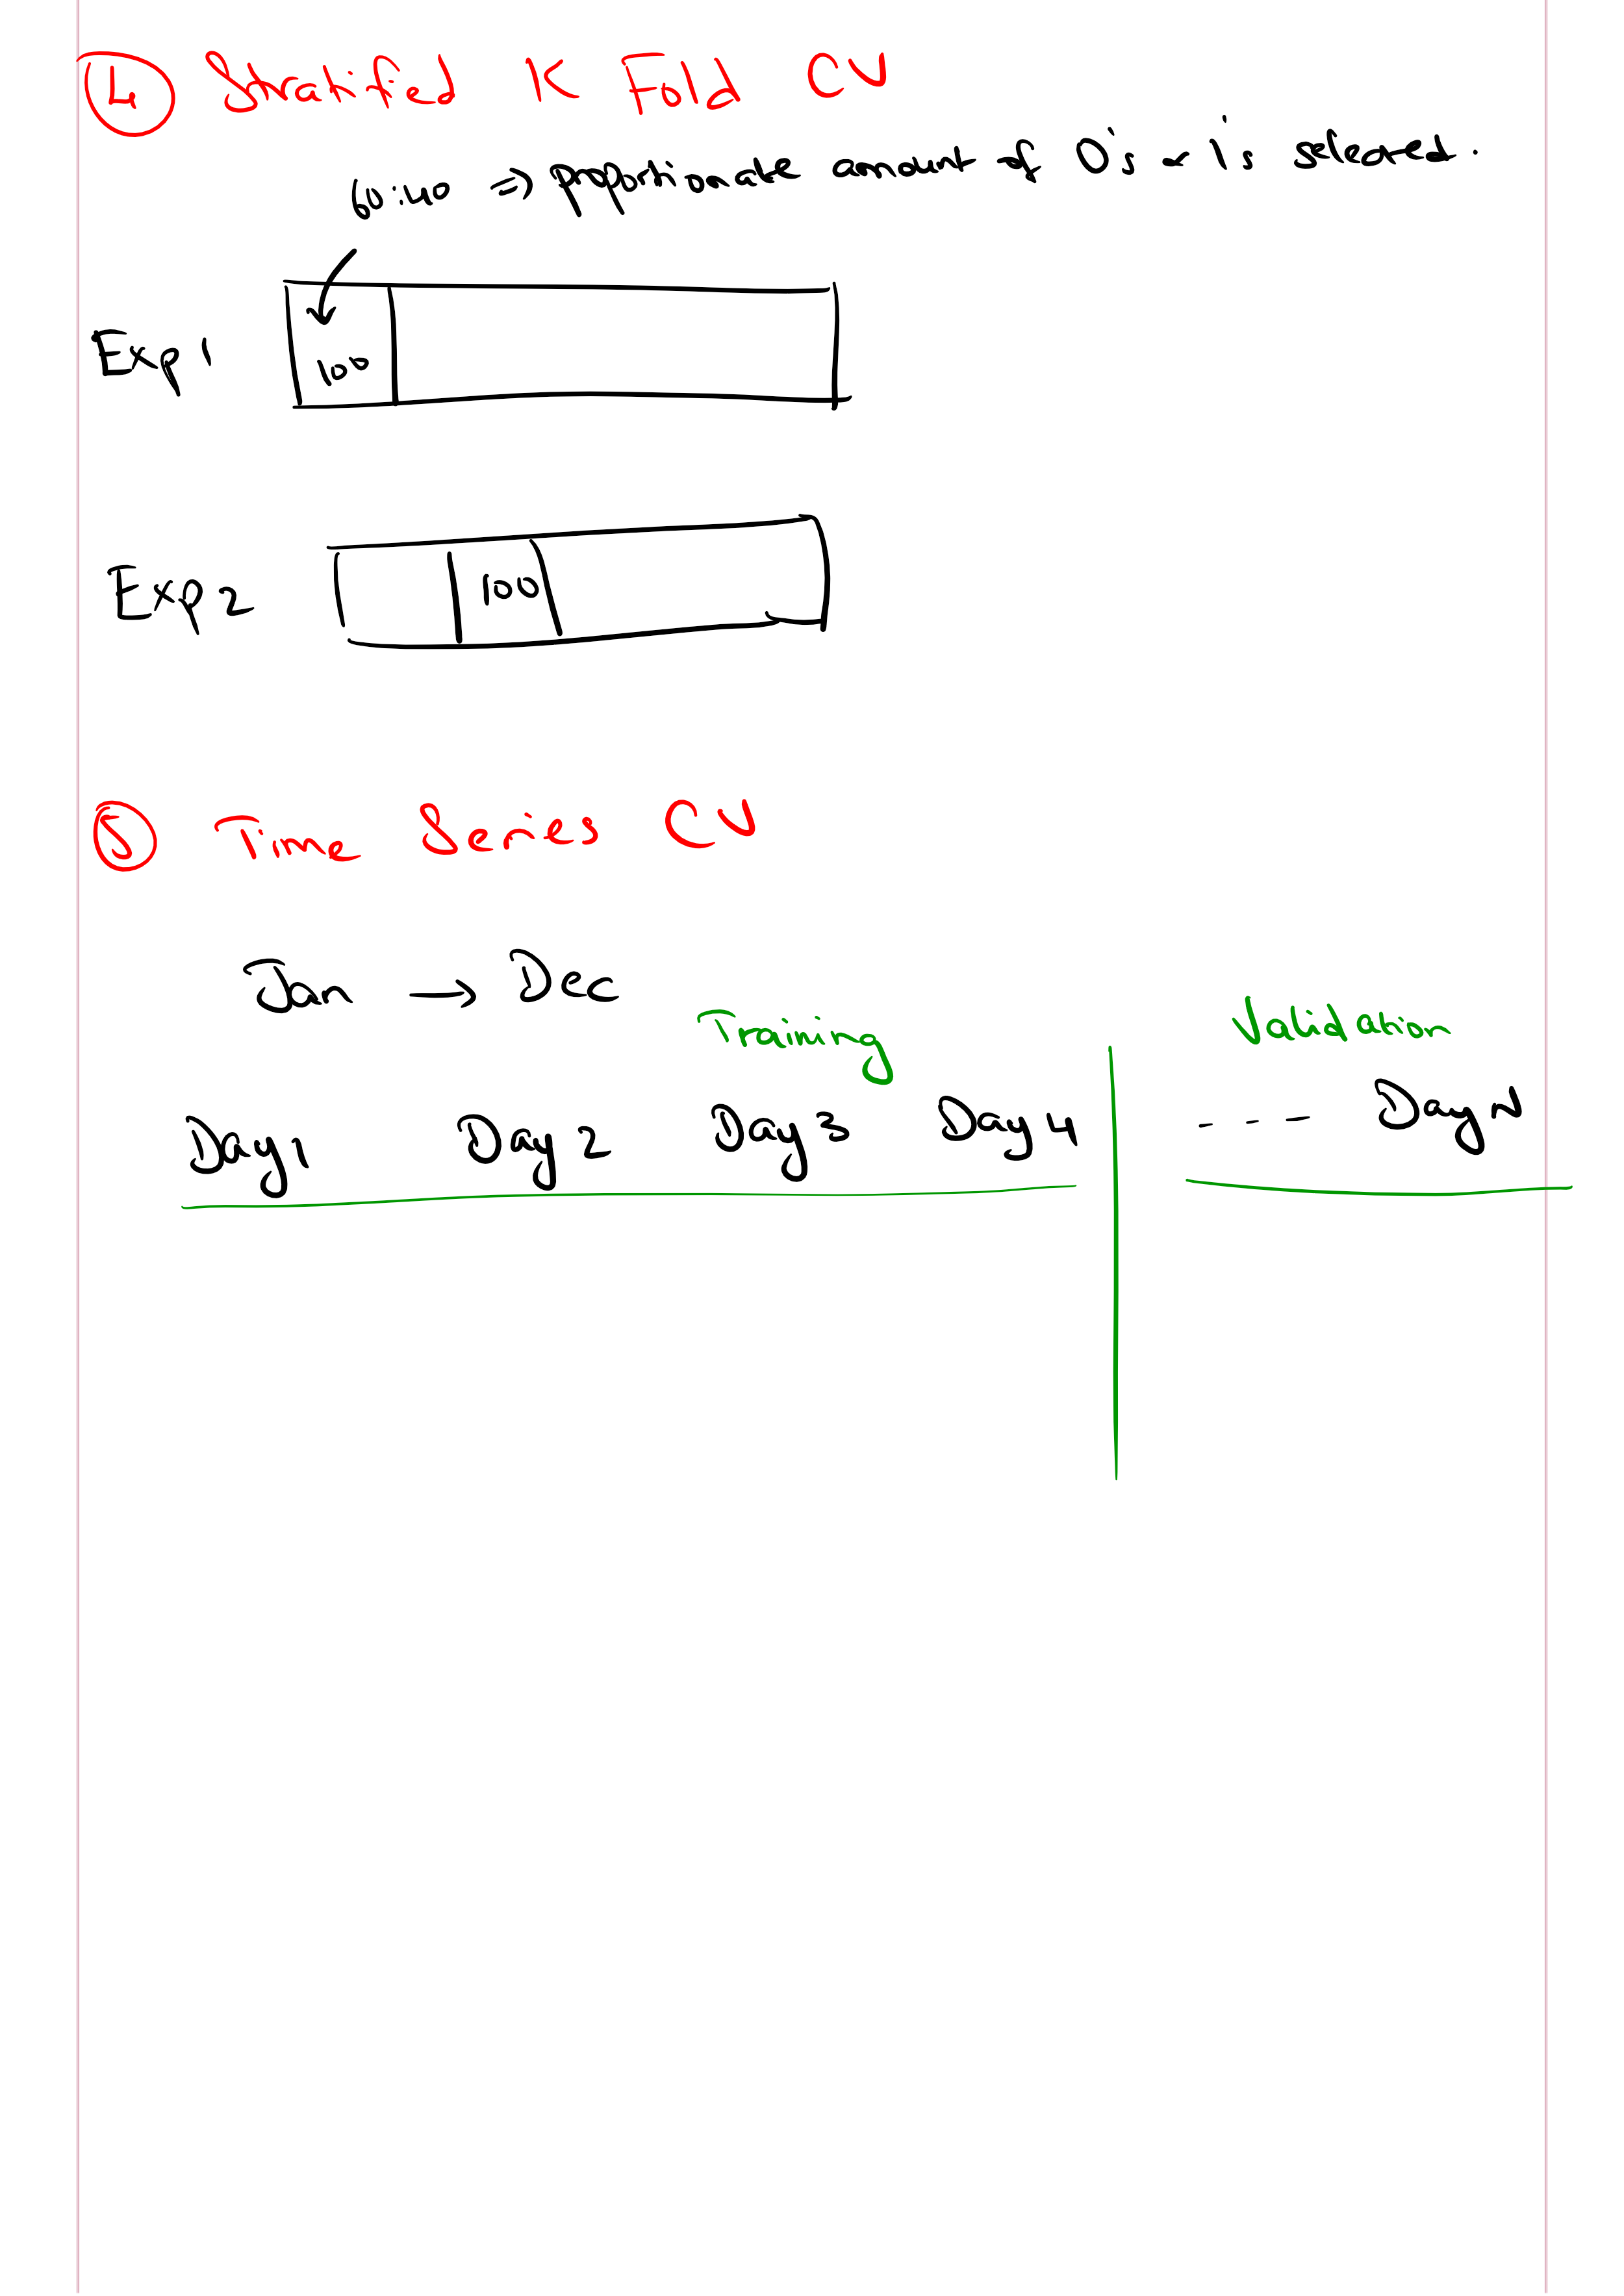 4 Stratifed K Fold CV
60:40 => proportionate amount of 0's & 1's selected.
Exp 1
100
Exp 2
100
5 Time Series CV
Jan → Dec
Training Validation
Day 1 Day 2 Day 3 Day 4 - - - Day N